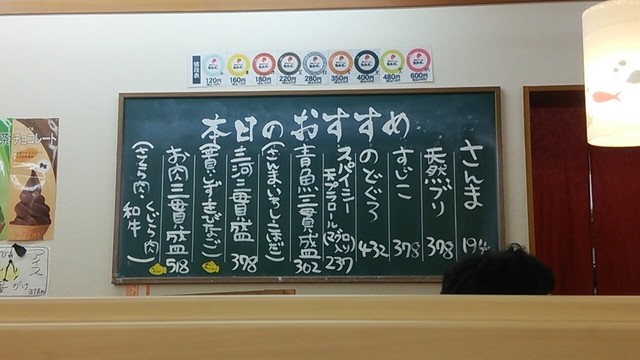 120円 160円 180円 220円 280円 350円 400円 480円 600円
本日のおすすめ
さんま
天然ブリ 378
すじこ 378
のどぐろ 432
スパイシー
天プラロール(マグロ入り) 237
青魚三貫盛 302
(さんま・いわし・こはだ)
三河三貫盛 378
お肉三貫盛 518
(さくら肉・くじら肉
和牛)
茶
チョコレート
アイス